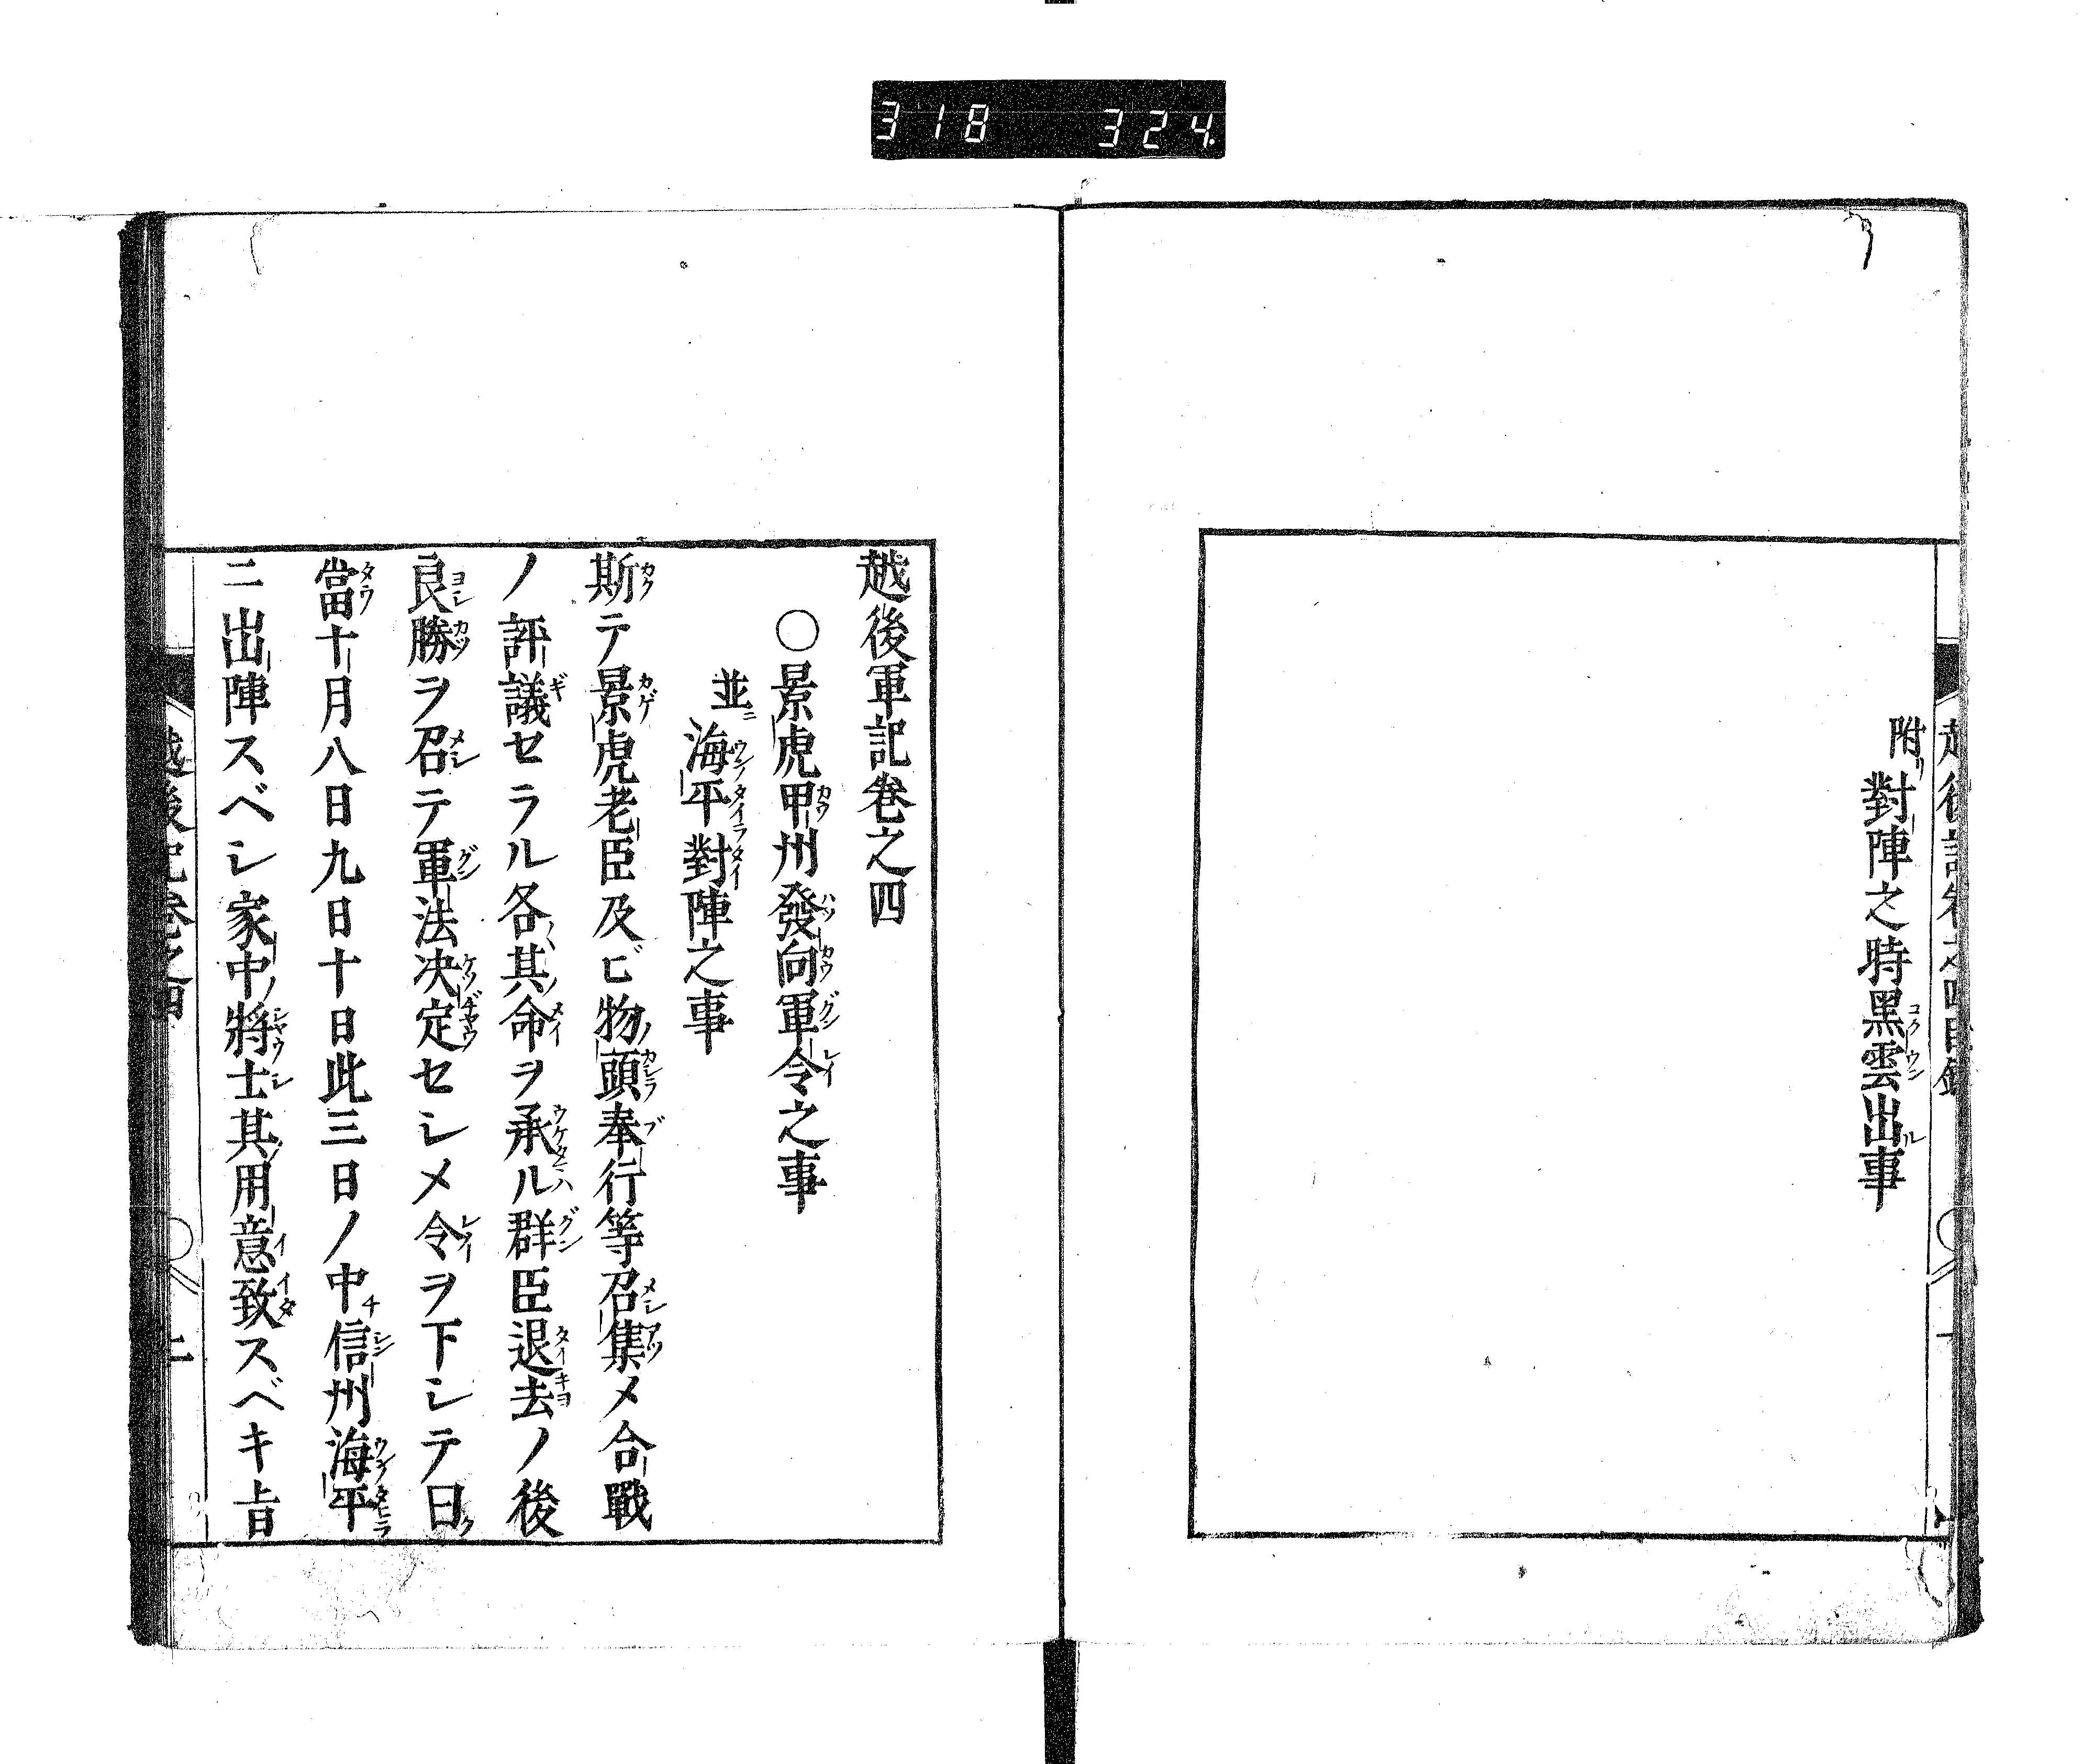 318 324
附リ對陣之時黑雲出ル事
越後軍記卷之四
○景虎甲州發向軍令之事
並ニ海平對陣之事
斯テ景虎老臣及ビ物頭奉行等召集メ合戰
ノ評議セラル各其命ヲ承ル群臣退去ノ後
良勝ヲ召テ軍法决定セシメ令ヲ下シテ曰ク
當十月八日九日十日此三日ノ中チ信州海平
ニ出陣スベシ家中ノ將士其用意致スベキ旨